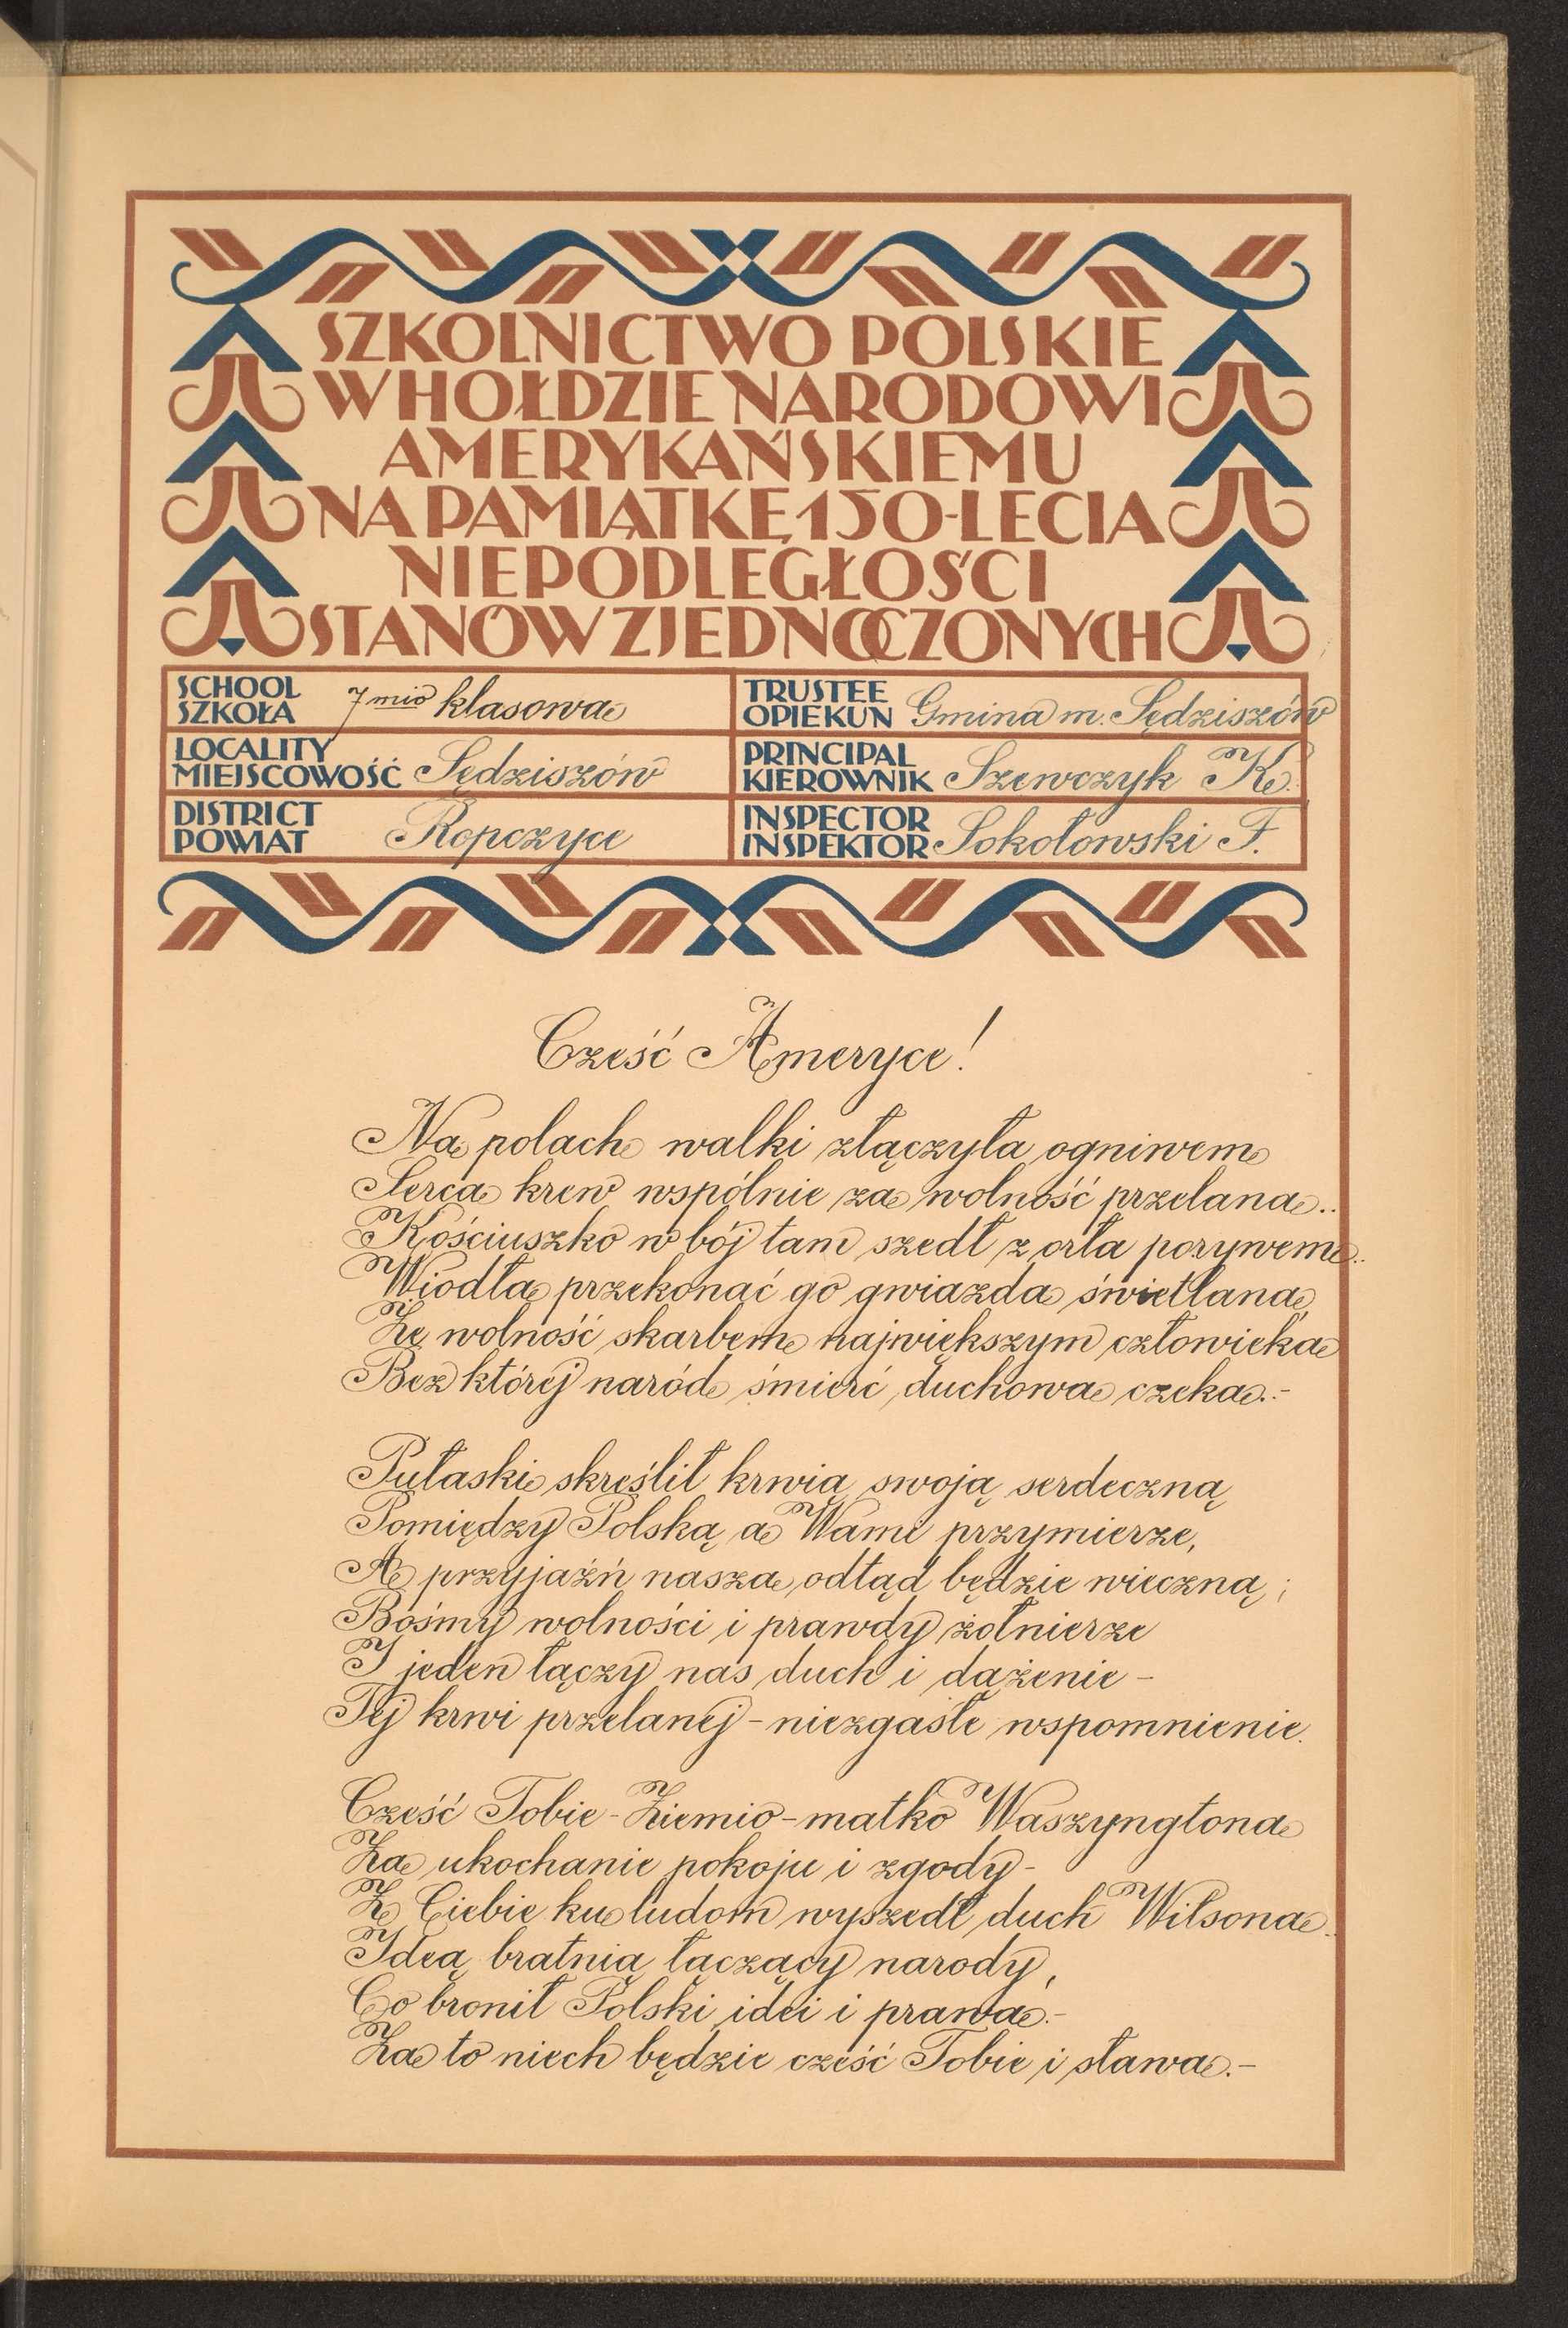 SZKOLNICTWO POLSKIE
W HOŁDZIE NARODOWI
AMERYKAŃSKIEMU
NA PAMIĄTKĘ 150-LECIA
NIEPODLEGŁOŚCI
STANÓW ZJEDNOCZONYCH
SCHOOL
SZKOŁA 7mio klasowa
TRUSTEE
OPIEKUN Gmina m. Sędziszów
LOCALITY
MIEJSCOWOŚĆ Sędziszów
PRINCIPAL
KIEROWNIK Szewczyk K.
DISTRICT
POWIAT Ropczyce
INSPECTOR
INSPEKTOR Sokołowski F.
Cześć Ameryce!
Na polach walki złączyła ogniwem
Serca krew wspólnie za wolność przelana..
Kościuszko w bój tam szedł z orła porywem..
Wiodła przekonać go gwiazda świetlana,
Że wolność skarbem największym człowieka
Bez której naród śmierć duchowa czeka.-
Pułaski skreślił krwią swoją serdeczną
Pomiędzy Polską a Wami przymierze,
A przyjaźń nasza odtąd będzie wieczną;
Bośmy wolności i prawdy żołnierze
I jeden łączy nas duch i dążenie -
Tej krwi przelanej - niezgasłe wspomnienie.
Cześć Tobie - Ziemio - matko Waszyngtona
Za ukochanie pokoju i zgody -
Z Ciebie ku ludom wyszedł duch Wilsona.
Ideą bratnią łączący narody,
Co bronił Polski idei i prawa.-
Za to niech będzie cześć Tobie i sława.-